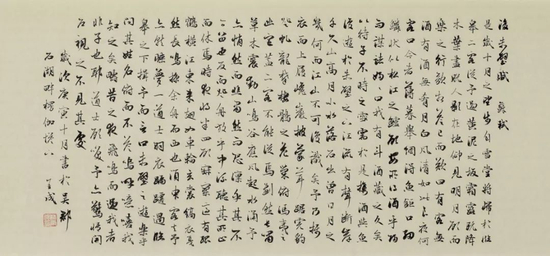 後赤壁賦 蘇軾
是歲十月之望步自雪堂將歸於臨
皋二客從予過黃泥之坂霜露既降
木葉盡脫人影在地仰見明月顧而
樂之行歌相答已而歎曰有客無
酒有酒無肴月白風清如此良夜何
客曰今者薄暮舉網得魚巨口細
鱗狀似松江之鱸顧安所得酒乎歸
而謀諸婦婦曰我有斗酒藏之久矣
以待子不時之需於是攜酒與魚
復遊於赤壁之下江流有聲斷岸
千尺山高月小水落石出曾日月之
幾何而江山不可復識矣予乃攝
衣而上履巉巖披蒙茸踞虎豹
登虬龍攀棲鶻之危巢俯馮夷之
幽宮蓋二客不能從焉劃然長嘯
草木震動山鳴谷應風起水湧予
亦悄然而悲肅然而恐凜乎其不
可留也反而登舟放乎中流聽其所止
而休焉時夜將半四顧寂寥適有孤
鶴橫江東來翅如車輪玄裳縞衣戛
然長鳴掠予舟而西也須臾客去予
亦就睡夢一道士羽衣蹁躚過臨
皋之下揖予而言曰赤壁之遊樂乎
問其姓名俛而不答嗚呼噫嘻我
知之矣疇昔之夜飛鳴而過我者
非子也耶道士顧笑予亦驚悟開
戶視之不見其處
歲次庚寅十月書於吳郡
石湖畔